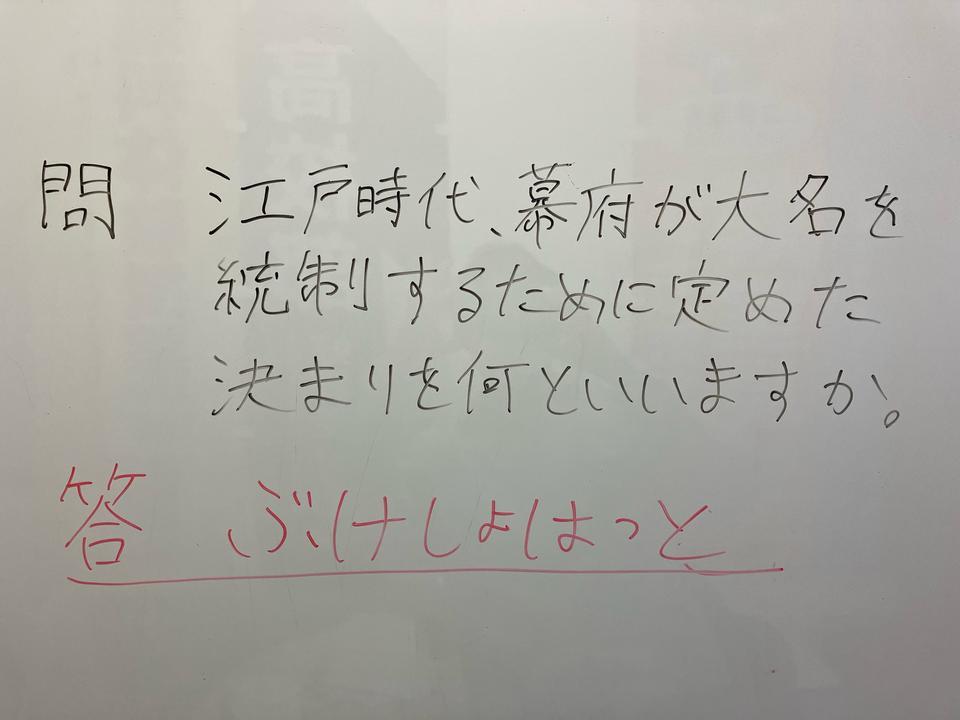 問 江戸時代、幕府が大名を
統制するために定めた
決まりを何といいますか。
答 ぶけしょはっと